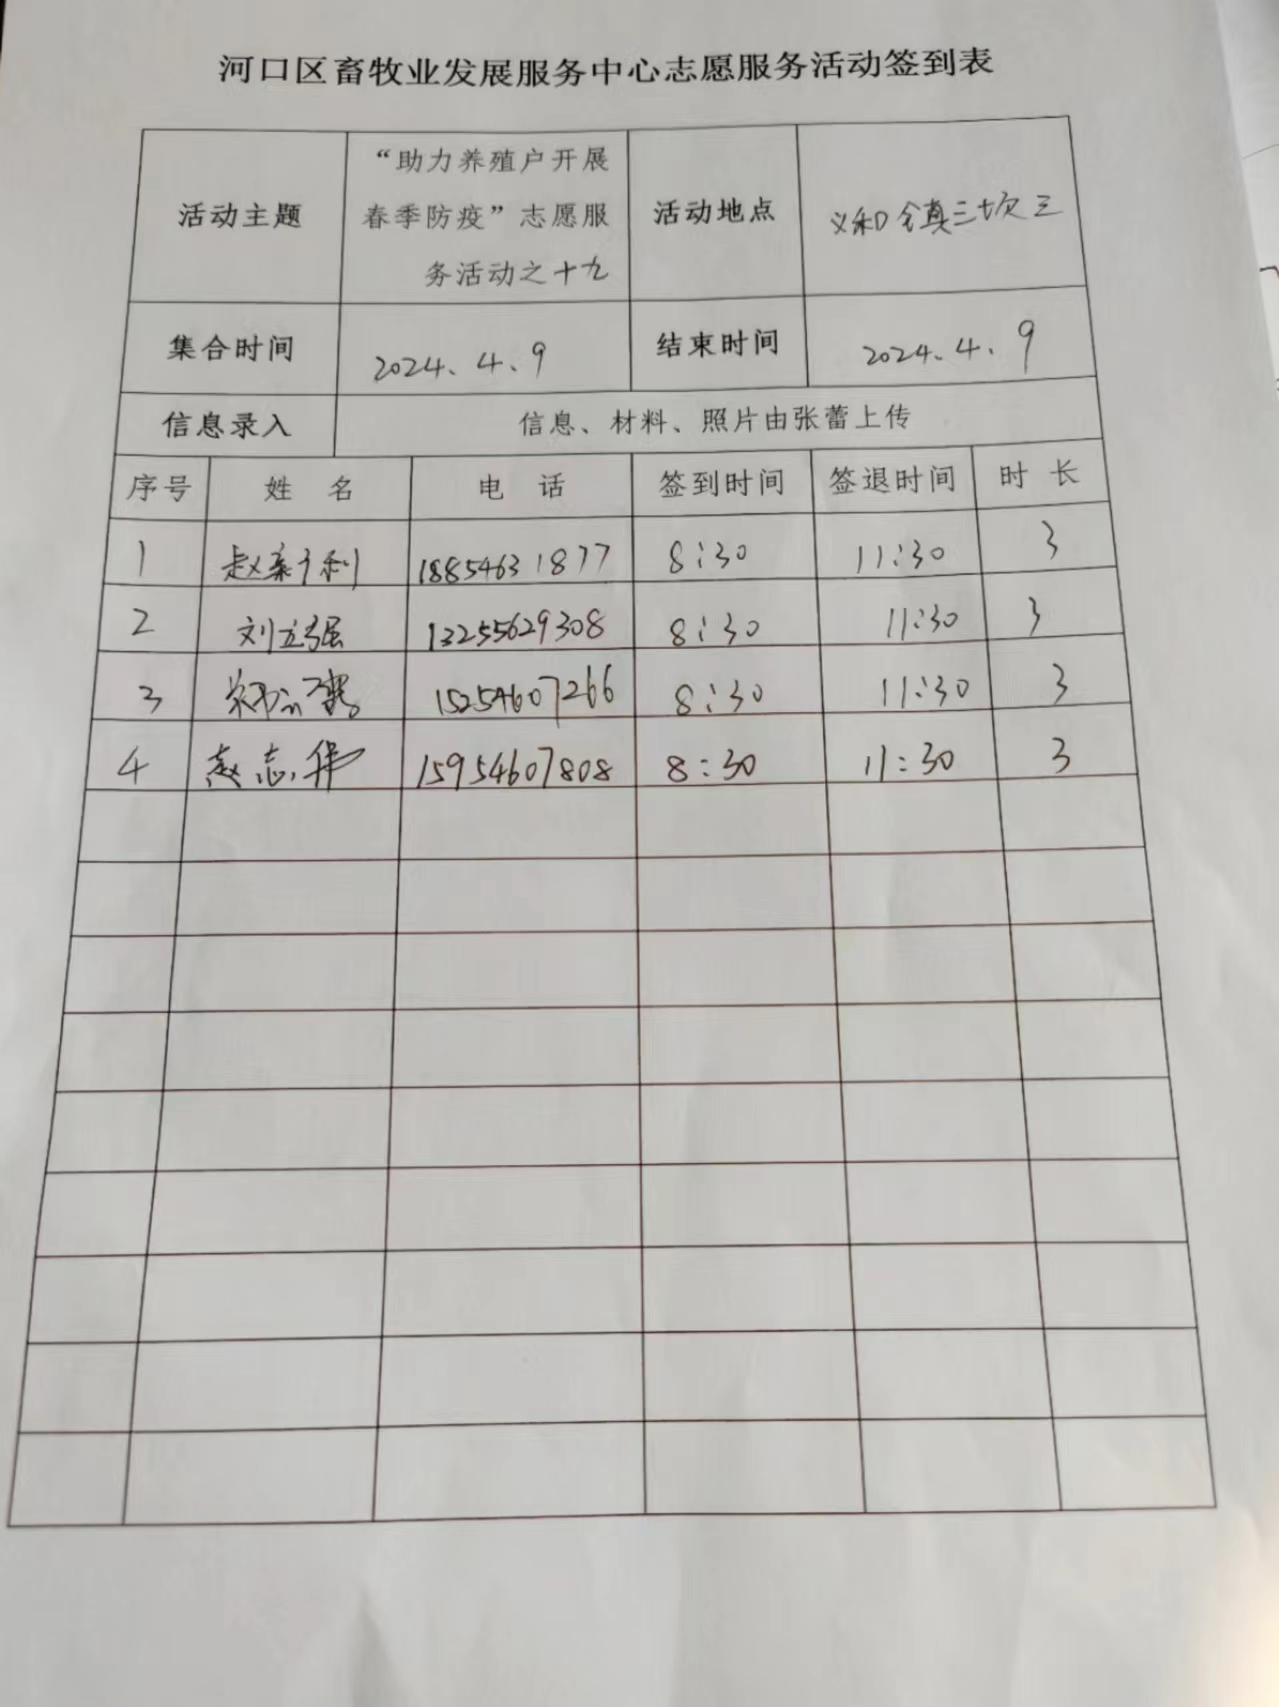 河口区畜牧业发展服务中心志愿服务活动签到表
活动主题
“助力养殖户开展
春季防疫”志愿服
务活动之十九
活动地点
义和镇三坎三
集合时间 2024.4.9 结束时间 2024.4.9
信息录入 信息、材料、照片由张蕾上传
序号 姓 名 电 话 签到时间 签退时间 时 长
1 18854631877 8:30 11:30 3
2 刘立强 13255629308 8:30 11:30 3
3 15254607266 8:30 11:30 3
4 赵志华 15954607808 8:30 11:30 3